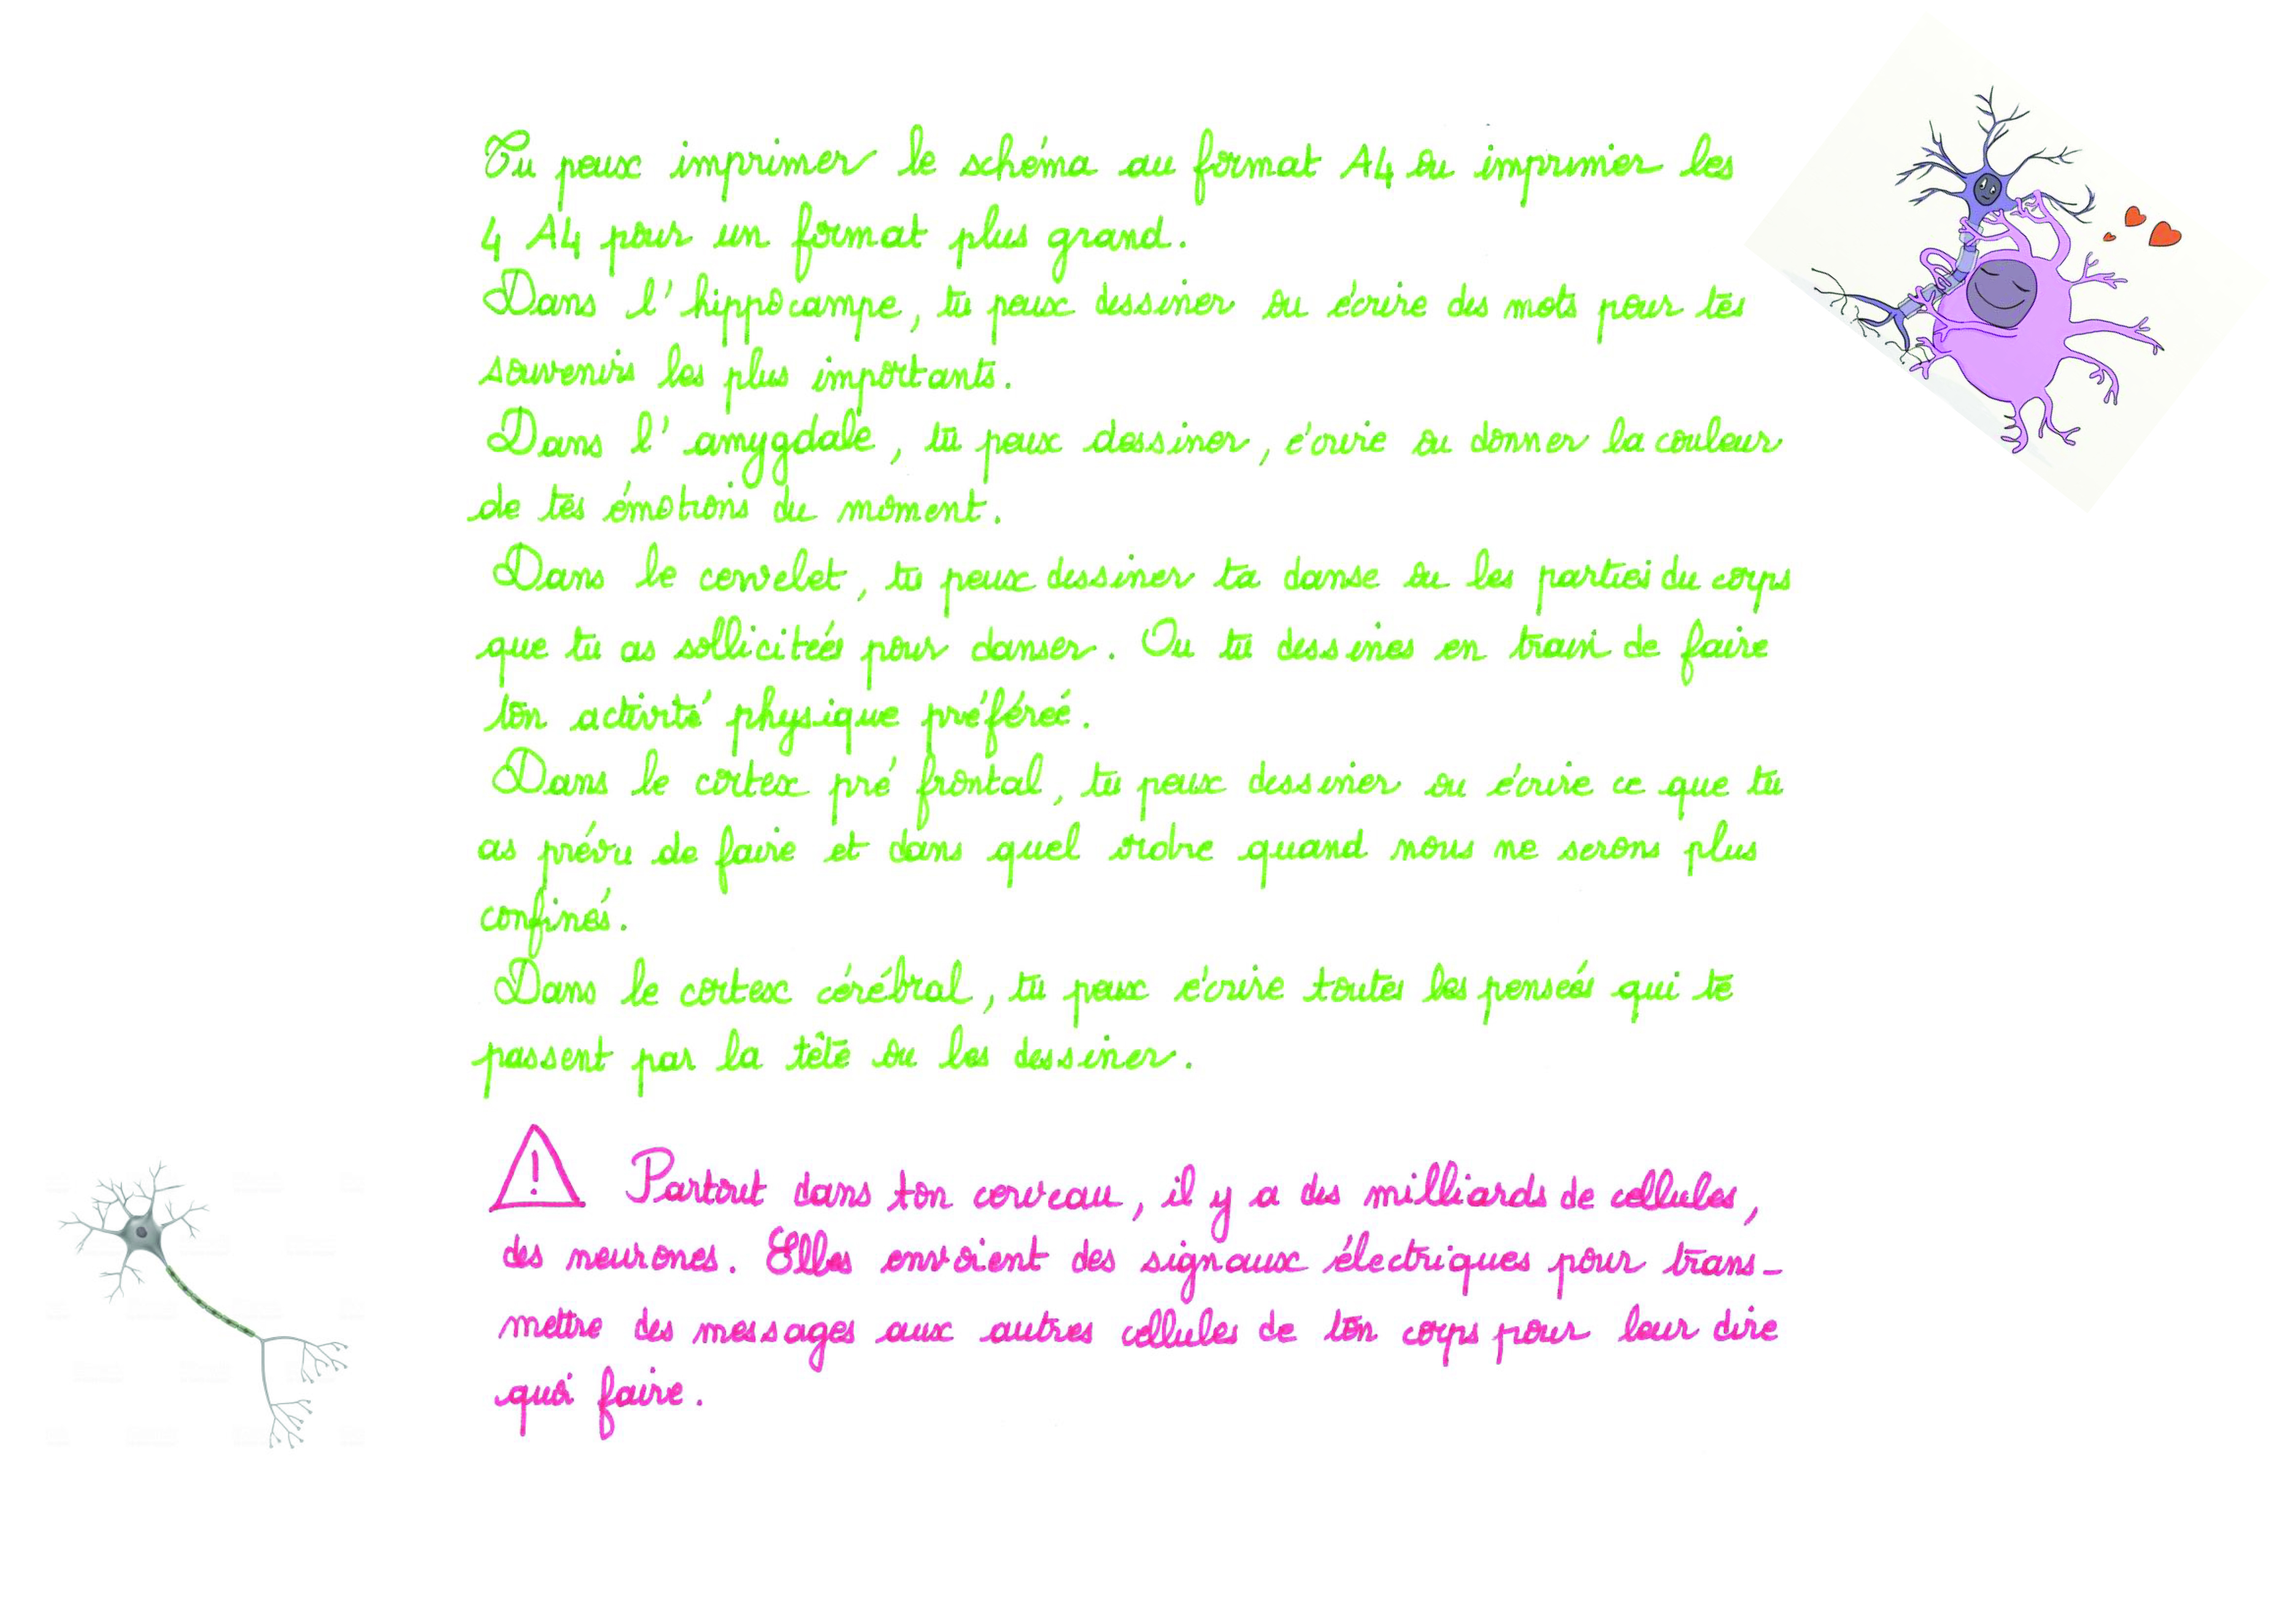 Tu peux imprimer le schéma au format A4 ou imprimer les
4 A4 pour un format plus grand.
Dans l'hippocampe, tu peux dessiner ou écrire des mots pour tes
souvenirs les plus importants.
Dans l'amygdale, tu peux dessiner, écrire ou donner la couleur
de tes émotions du moment.
Dans le cervelet, tu peux dessiner ta danse ou les parties du corps
que tu as sollicitées pour danser. Ou tu dessines en train de faire
ton activité physique préférée.
Dans le cortex pré frontal, tu peux dessiner ou écrire ce que tu
as prévu de faire et dans quel ordre quand nous ne serons plus
confinés.
Dans le cortex cérébral, tu peux écrire toutes les pensées qui te
passent par la tête ou les dessiner.
! Partout dans ton cerveau, il y a des milliards de cellules,
des neurones. Elles envoient des signaux électriques pour trans-
mettre des messages aux autres cellules de ton corps pour leur dire
quoi faire.